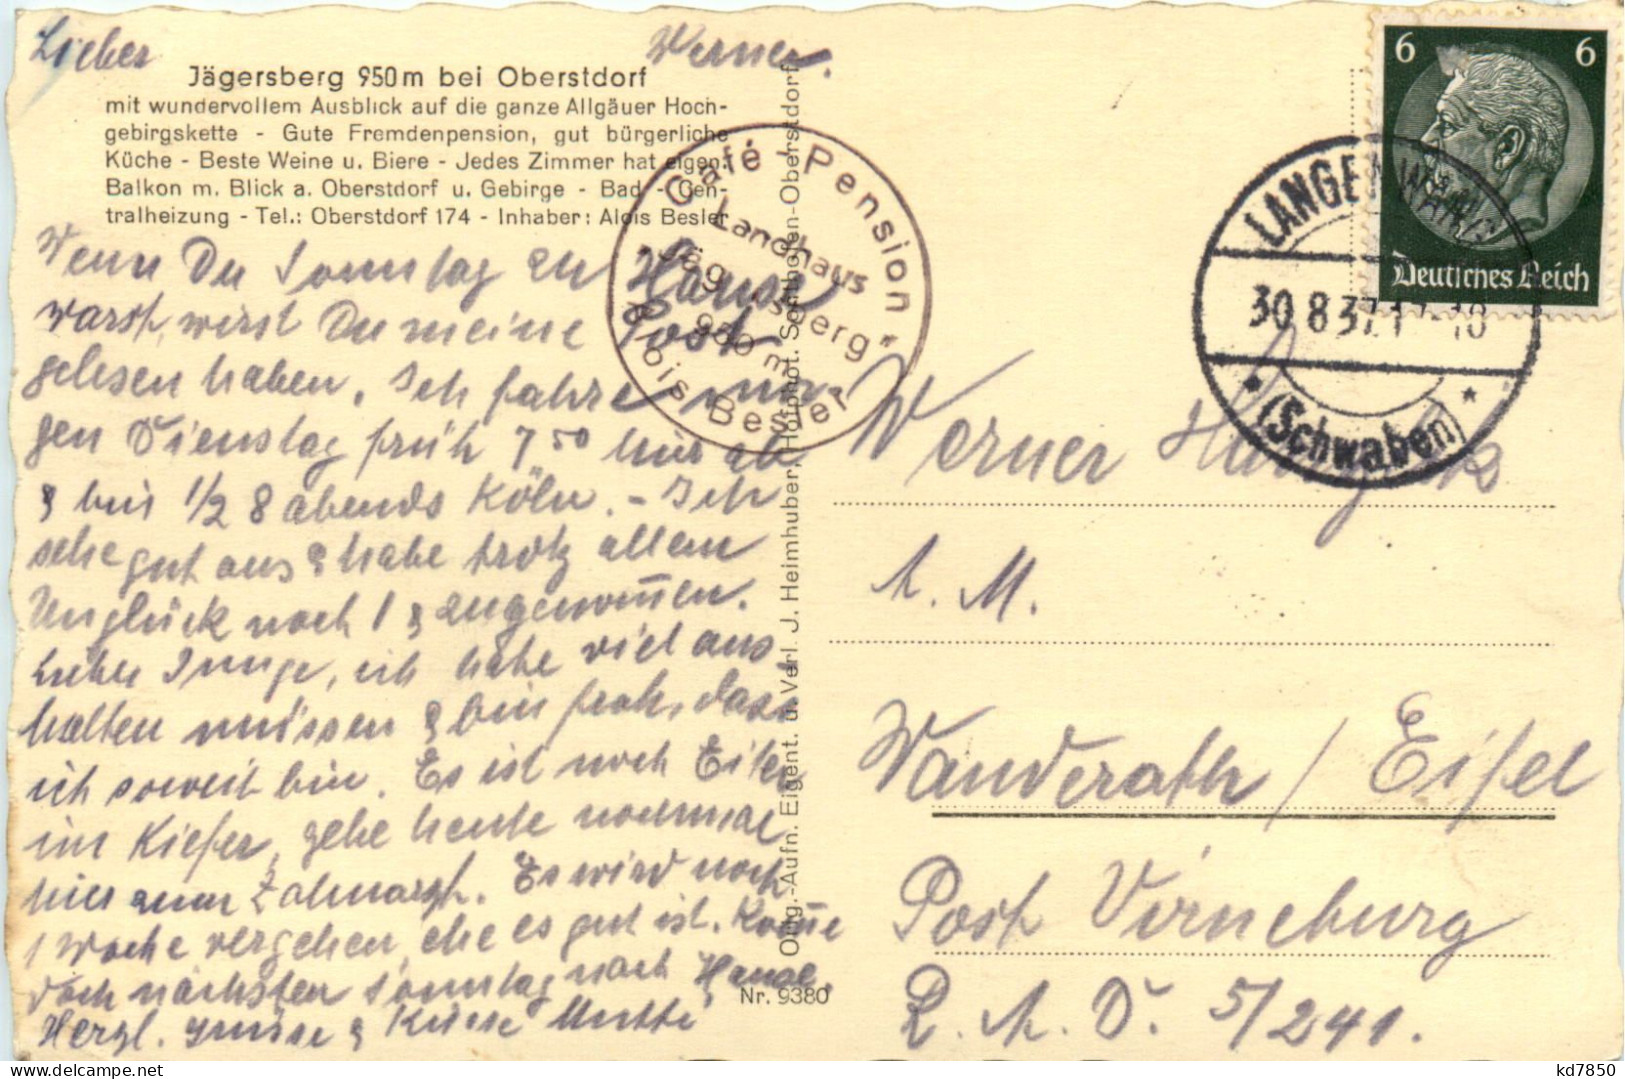 Lieber Werner.
Jägersberg 950m bei Oberstdorf
mit wundervollem Ausblick auf die ganze Allgäuer Hoch-
gebirgskette - Gute Fremdenpension, gut bürgerliche
Küche - Beste Weine u. Biere - Jedes Zimmer hat eigen.
Balkon m. Blick a. Oberstdorf u. Gebirge - Bad - Cen-
tralheizung - Tel.: Oberstdorf 174 - Inhaber: Alois Besler
Wenn Du Sonntag zu Hause
warst, wirst Du meine Post
gelesen haben. Ich fahre mor-
gen Dienstag früh 7 50 hier ab
& bin 1/2 8 abends Köln. - Ich
sehe gut aus & habe trotz allem
Unglück noch 1 & zugenommen.
Lieber Junge, ich habe viel aus
halten müssen & bin froh, dass
ich soweit bin. Es ist noch Eiter
im Kiefer, gehe heute nochmal
hier zum Zahnarzt. Es wird noch
1 Woche vergehen, ehe es gut ist. Komme
doch nächsten Sonntag nach Hause.
Herzl. Grüsse & Küsse Mutti
Café Pension
"Landhaus
Jägersberg"
950 m
Alois Besler
Orig.-Aufn. Eigent. u. Verl. J. Heimhuber, Hofphot. Sonthofen-Oberstdorf
Nr. 9380
6 6
Deutsches Reich
LANGENWANG
30.8.37.17-18
(Schwaben)
Werner
A. M.
Wanderath / Eifel
Post Virneburg
R. A. D. 5/241.
kd7850